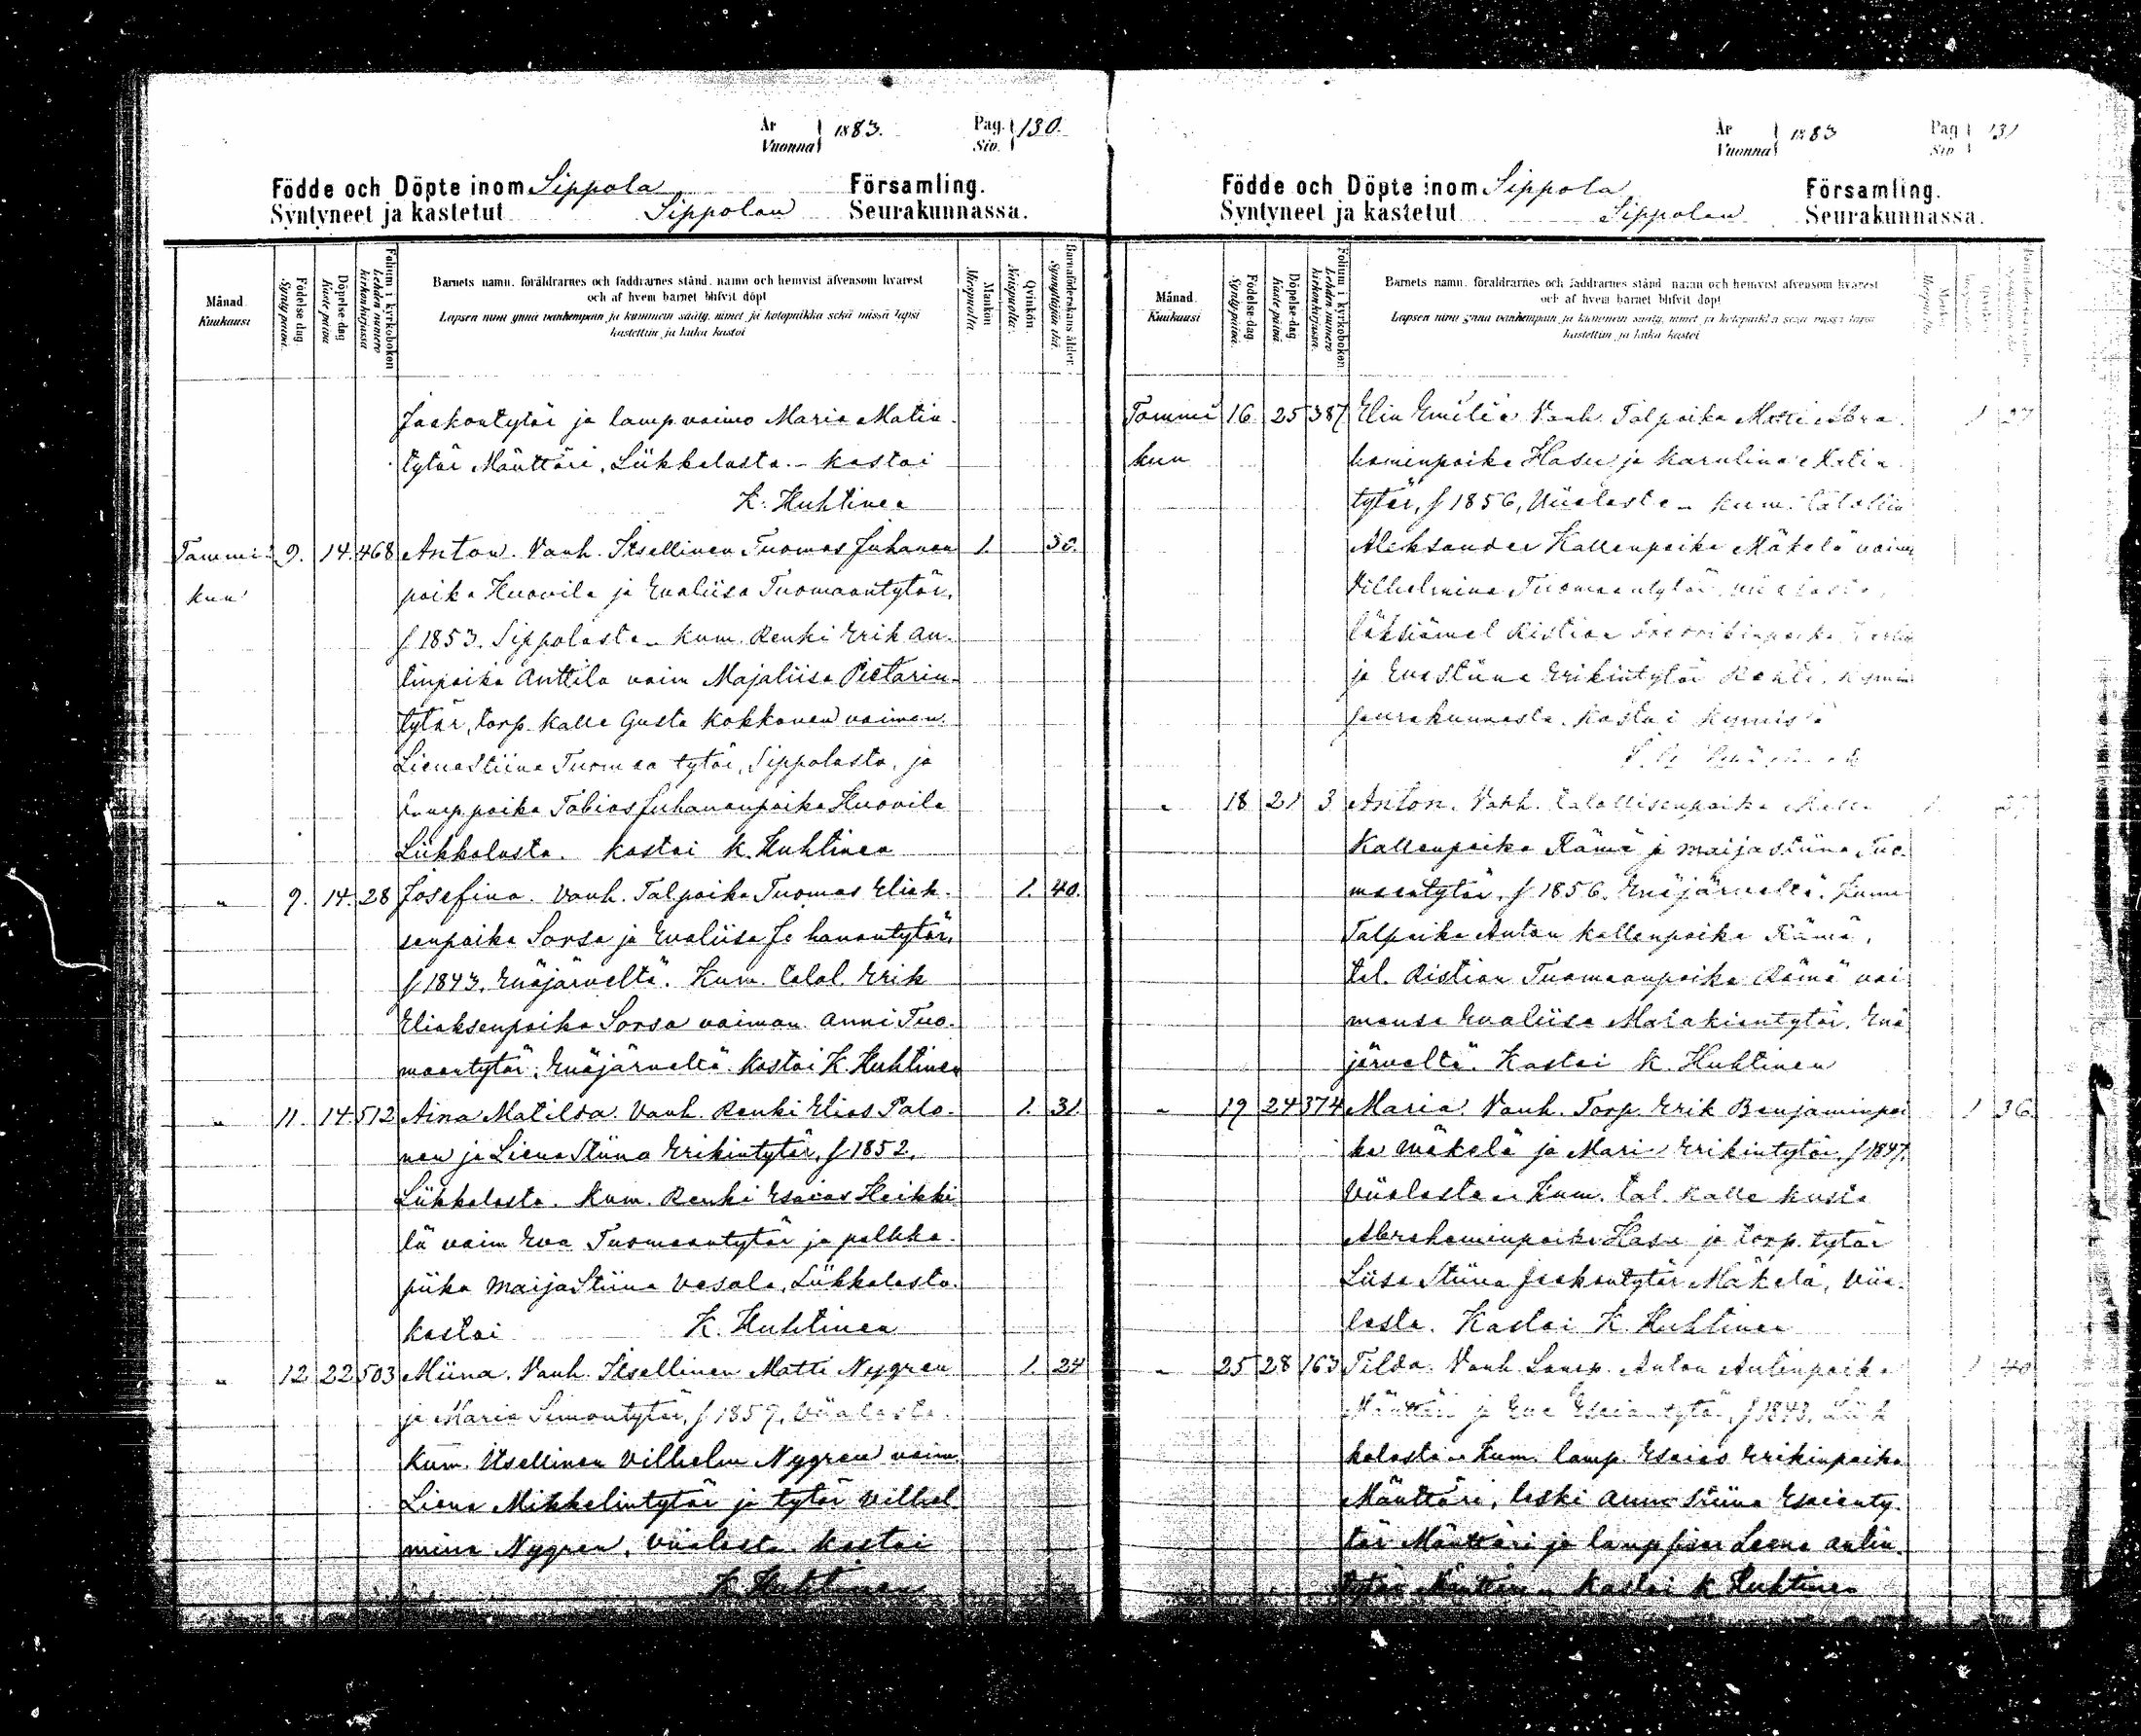 År
Vuonna 1883.
Pag.
Siv. 130.
Födde och Döpte inom Sippola Församling.
Syntyneet ja kastetut Sippolan Seurakunnassa.
Månad.
Kuukausi
Födelse dag.
Synty päivä.
Döpelse dag
Kaste päivä
Folium i kyrkoboken
Lehden numero
kirkonkirjassa
Barnets namn, föräldrarnes och faddrarnes stånd, namn och hemvist äfvensom hvarest
och af hvem barnet blifvit döpt
Lapsen nimi ynnä vanhempain ja kummein sääty, nimet ja kotopaikka sekä missä lapsi
kastettiin ja kuka kastoi
Mankön
Miespuolia.
Qvinkön.
Naispuolia.
Barnaföderskans ålder.
Synnyttäjän ikä.
Jaakontytär ja lamp vaimo Maria Matin
tytär Mänttäri, Liikkalasta. – kastoi
K. Huhtinen
Tammi 9. 14. 468 Anton. Vanh. Itsellinen Tuomas Juhanan 1. 30.
kuu poika Huovila ja Evaliisa Tuomaantytär,
f 1853. Sippolasta – Kum. Renki Erik An-
tinpoika Anttila vaim Majaliisa Pietarin-
tytär, torp. Kalle Gusta Kokkonen vaimon
Liena Stiina Tuomaa tytär, Sippolasta, ja
lamp. poika Tobias Juhananpoika Huovila
Liikkalasta. Kastoi K. Huhtinen
" 9. 14. 28 Josefina. Vanh. Tal poika Tuomas Eliak- 1. 40.
senpoika Sorsa ja Evaliisa Juhanantytär,
f 1843. Enäjärveltä. Kum. talol. Erik
Eliaksenpoika Sorsa vaimon Anni Tuo-
maantytär, Enäjärveltä Kastoi K. Huhtinen
" 11. 14. 512 Aina Matilda. Vanh. Renki Elias Palo- 1. 31.
nen ja Liena Stiina Erikintytär, f 1852.
Liikkalasta. Kum. Renki Esaias Heikki
lä vaim Eva Tuomaantytär ja palkka-
piika Maija Stiina Vesala, Liikkalasta.
kastoi K. Huhtinen
" 12 22 503 Miina. Vanh. Itsellinen Matti Nygren 1. 24
ja Maria Simontytär, f 1859, Viialasta.
Kum. Itsellinen Vilhelm Nygren vaim.
Liena Mikkelintytär ja tytär Vilhel-
mina Nygren, Viialasta. Kastoi
K. Huhtinen
År
Vuonna 1883
Pag
Siv 131
Födde och Döpte inom Sippola Församling.
Syntyneet ja kastetut Sippolan Seurakunnassa.
Månad.
Kuukausi
Födelse-dag
Synty päivä.
Döpelse-dag
Kaste päivä
Folium i kyrkoboken
Lehden numero
kirkonkirjassa.
Barnets namn, föräldrarnes och faddrarnes stånd, namn och hemvist äfvensom hvarest
och af hvem barnet blifvit döpt
Lapsen nimi ynnä vanhempain ja kummein sääty, nimet ja kotopaikka sekä missä lapsi
kastettiin ja kuka kastoi
Tammi 16 25 387 Elin Emilia Vanh. Talpoika Matti Abra- 1 27
kuu haminpoika Hasu ja Karulina Matin
tytär, f 1856, Viialasta – Kum.
Aleksander Kallenpoika Mäkelä vaimo
Vilhelmina Tuomaantytär
Ristian
ja Eva Stiina Erikintytär
seurakunnasta. Kastoi Kymistä
" 18 21 3 Anton. Vanh. talollisenpoika Kalle 1
Kallenpoika Rämä ja Maija Stiina Tuo-
maantytär, f 1856. Enäjärveltä. Kum.
Talpoika Anton Kallenpoika Rämä,
tal. Ristian Tuomaanpoika Rämä vai-
monsa Evaliisa Malakiantytär, Enä
järveltä. Kastoi K. Huhtinen
" 19 24 374 Maria. Vanh. Torp. Erik Benjaminpoi 1 36
ka Mäkelä ja Maria Erikintytär, f 1847.
Viialasta – Kum. tal. Kalle Kusta
Abrahaminpoika Hasu ja torp. tytär
Liisa Stiina Jaakontytär Mäkelä, Viia-
lasta. Kastoi K. Huhtinen
" 25 28 163 Tilda. Vanh. Lamp. Anton Antinpoika 1 40
Mänttäri ja Eva Esaiantytär, f 1843, Liik
kalasta – Kum. lamp. Esaias Erikinpoika
Mänttäri, leski Anna Stiina Esaianty-
tär Mänttäri ja lamp sisar Leena Antin-
tytär Mänttäri – Kastoi K Huhtinen